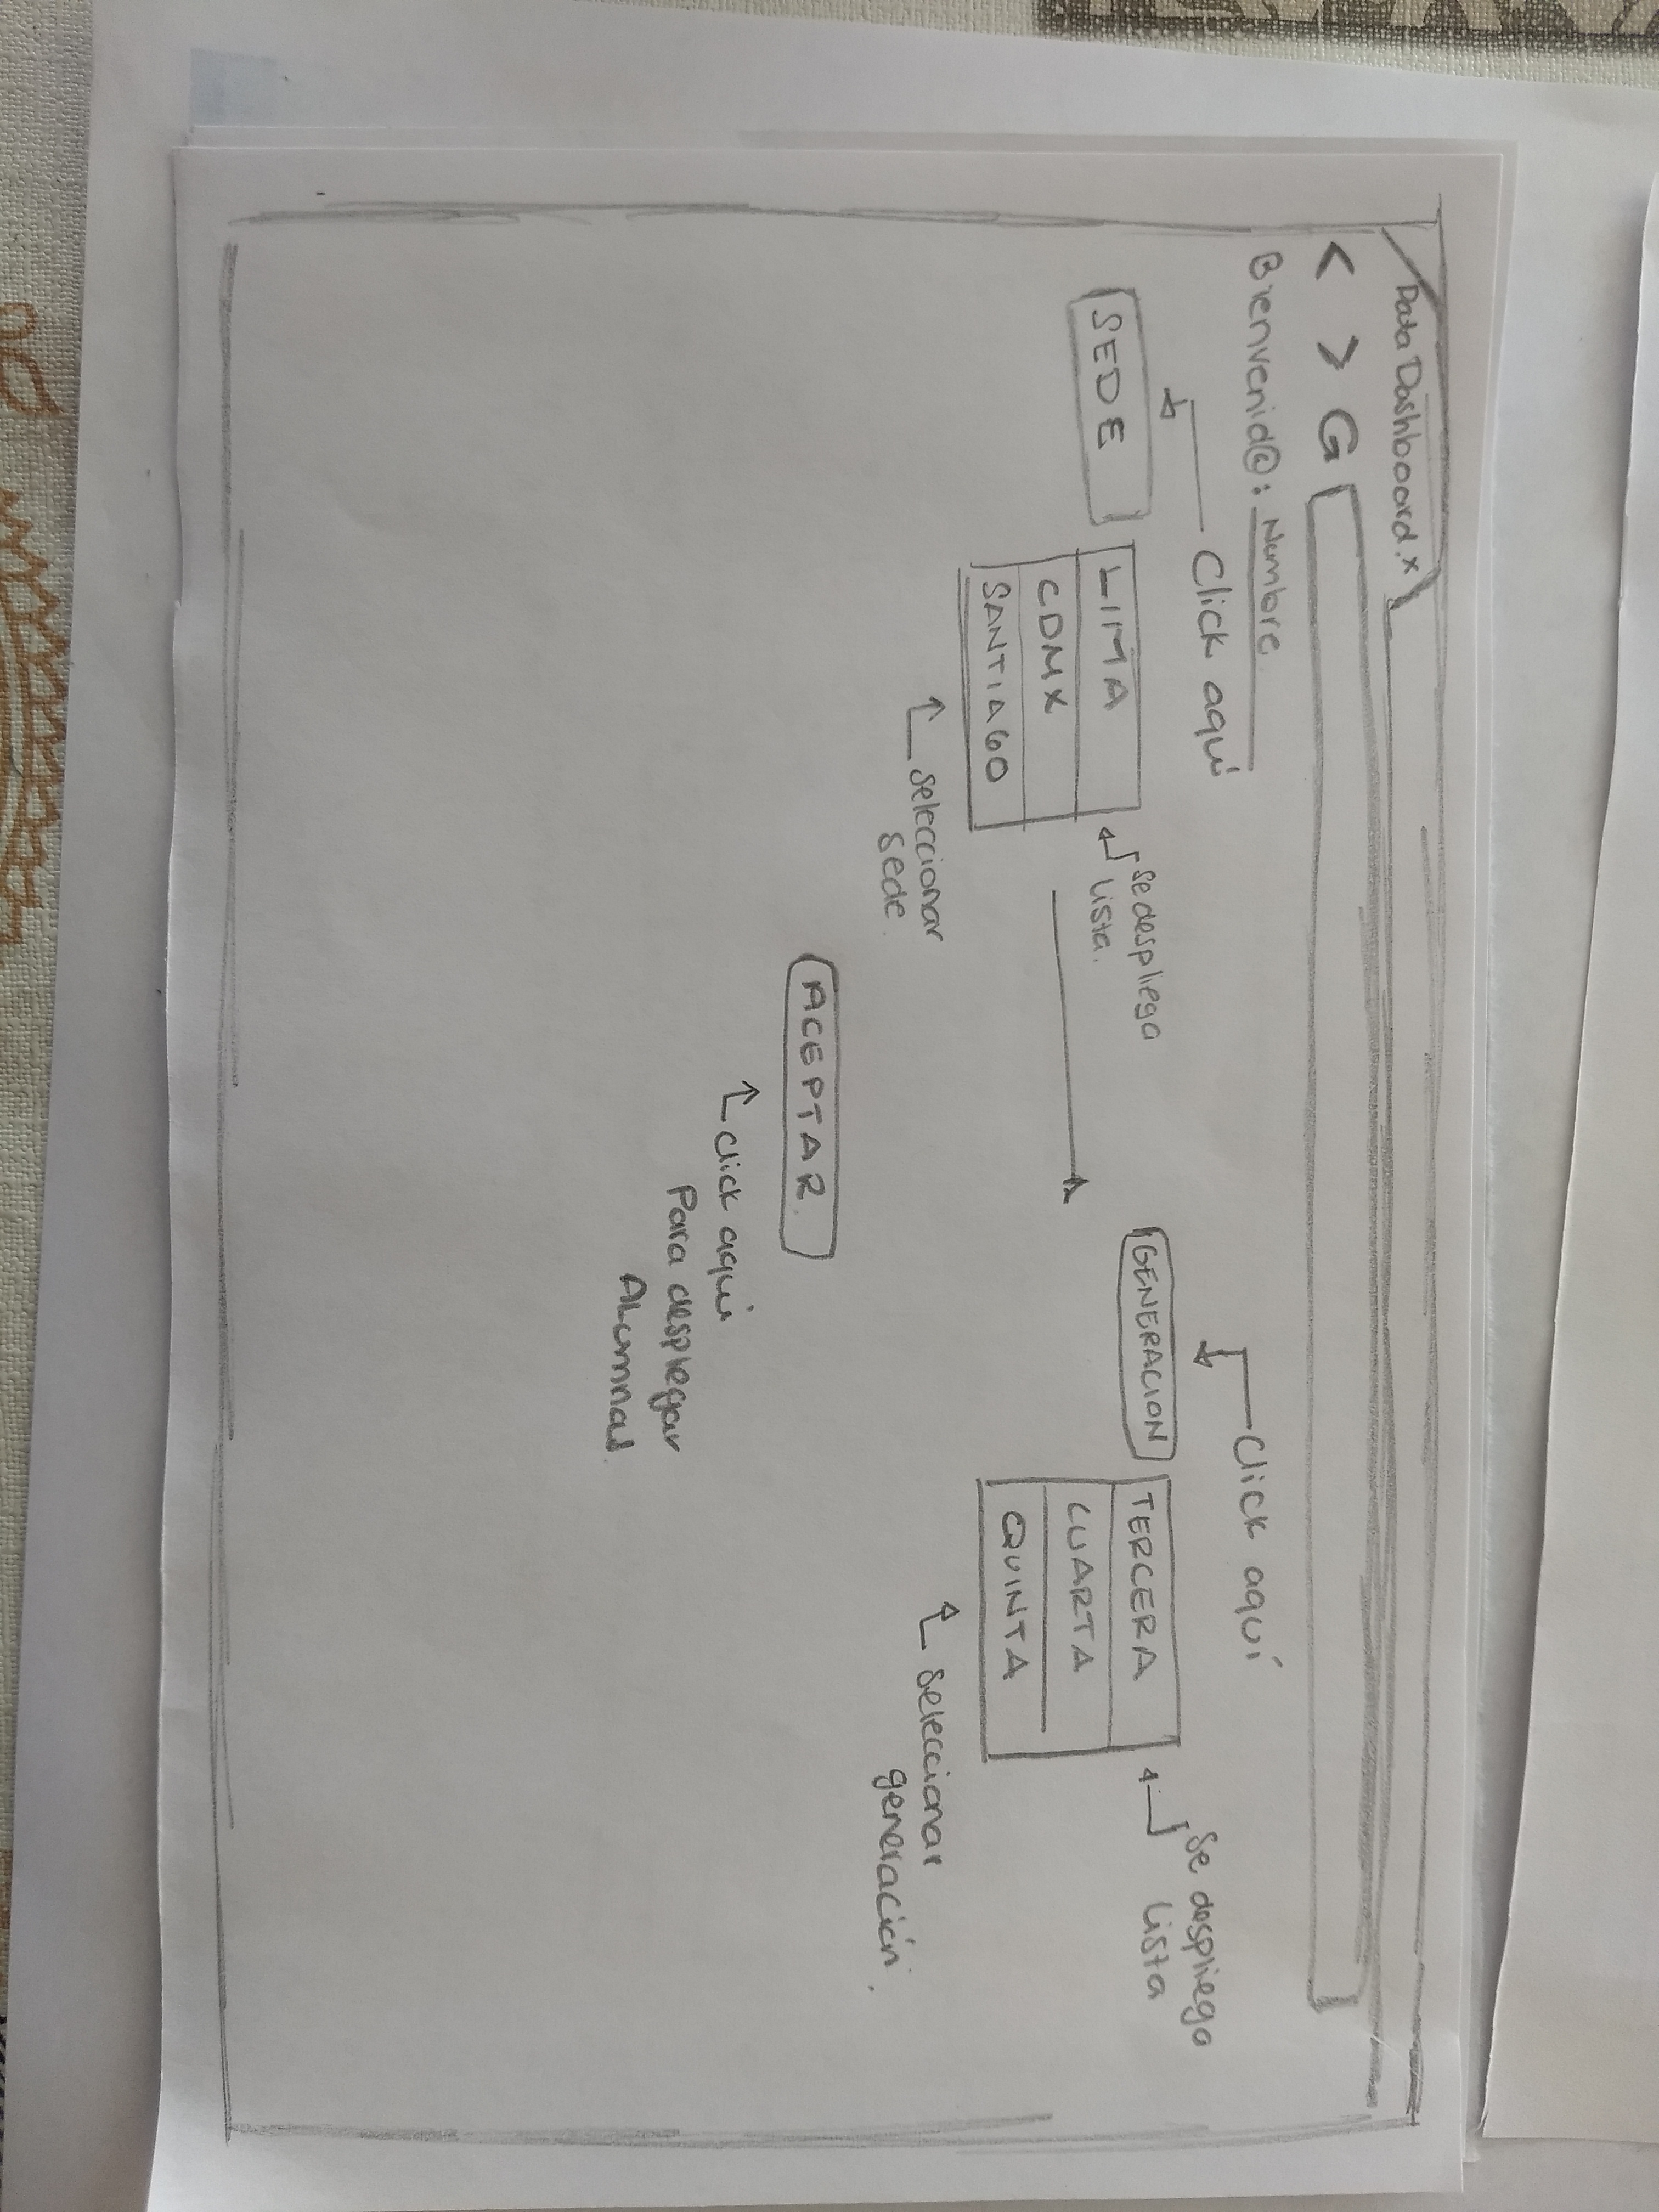 Data Dashboard. x
< > G
Bienvenid@: Nombre
Click aquí
Click aquí
SEDE
LIMA
CDMX
SANTIAGO
se despliega
lista.
seleccionar
sede.
GENERACION
TERCERA
CUARTA
QUINTA
Se despliega
lista
seleccionar
generación.
ACEPTAR.
click aqui
Para desplegar
Alumnas.